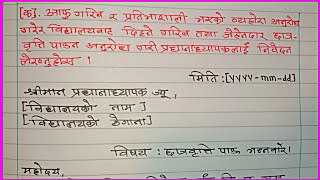 [क]. आफु गरिब र प्रतिभाशाली भएको व्यहोरा अनुरोध
गरेर विद्यालयबाट दिइने गरिब तथा जेहेनदार छात्र-
वृत्ति पाउन अनुरोध गरी प्रधानाध्यापकलाई निवेदन
लेख्नुहोस् ।
मिति :[YYYY-mm-dd]
श्रीमान प्रधानाध्यापक ज्यू,
[विद्यालयको नाम ]
[विद्यालयको ठेगाना]
विषय : छात्रवृत्ति पाऊ भन्नबारे।
महोदय,